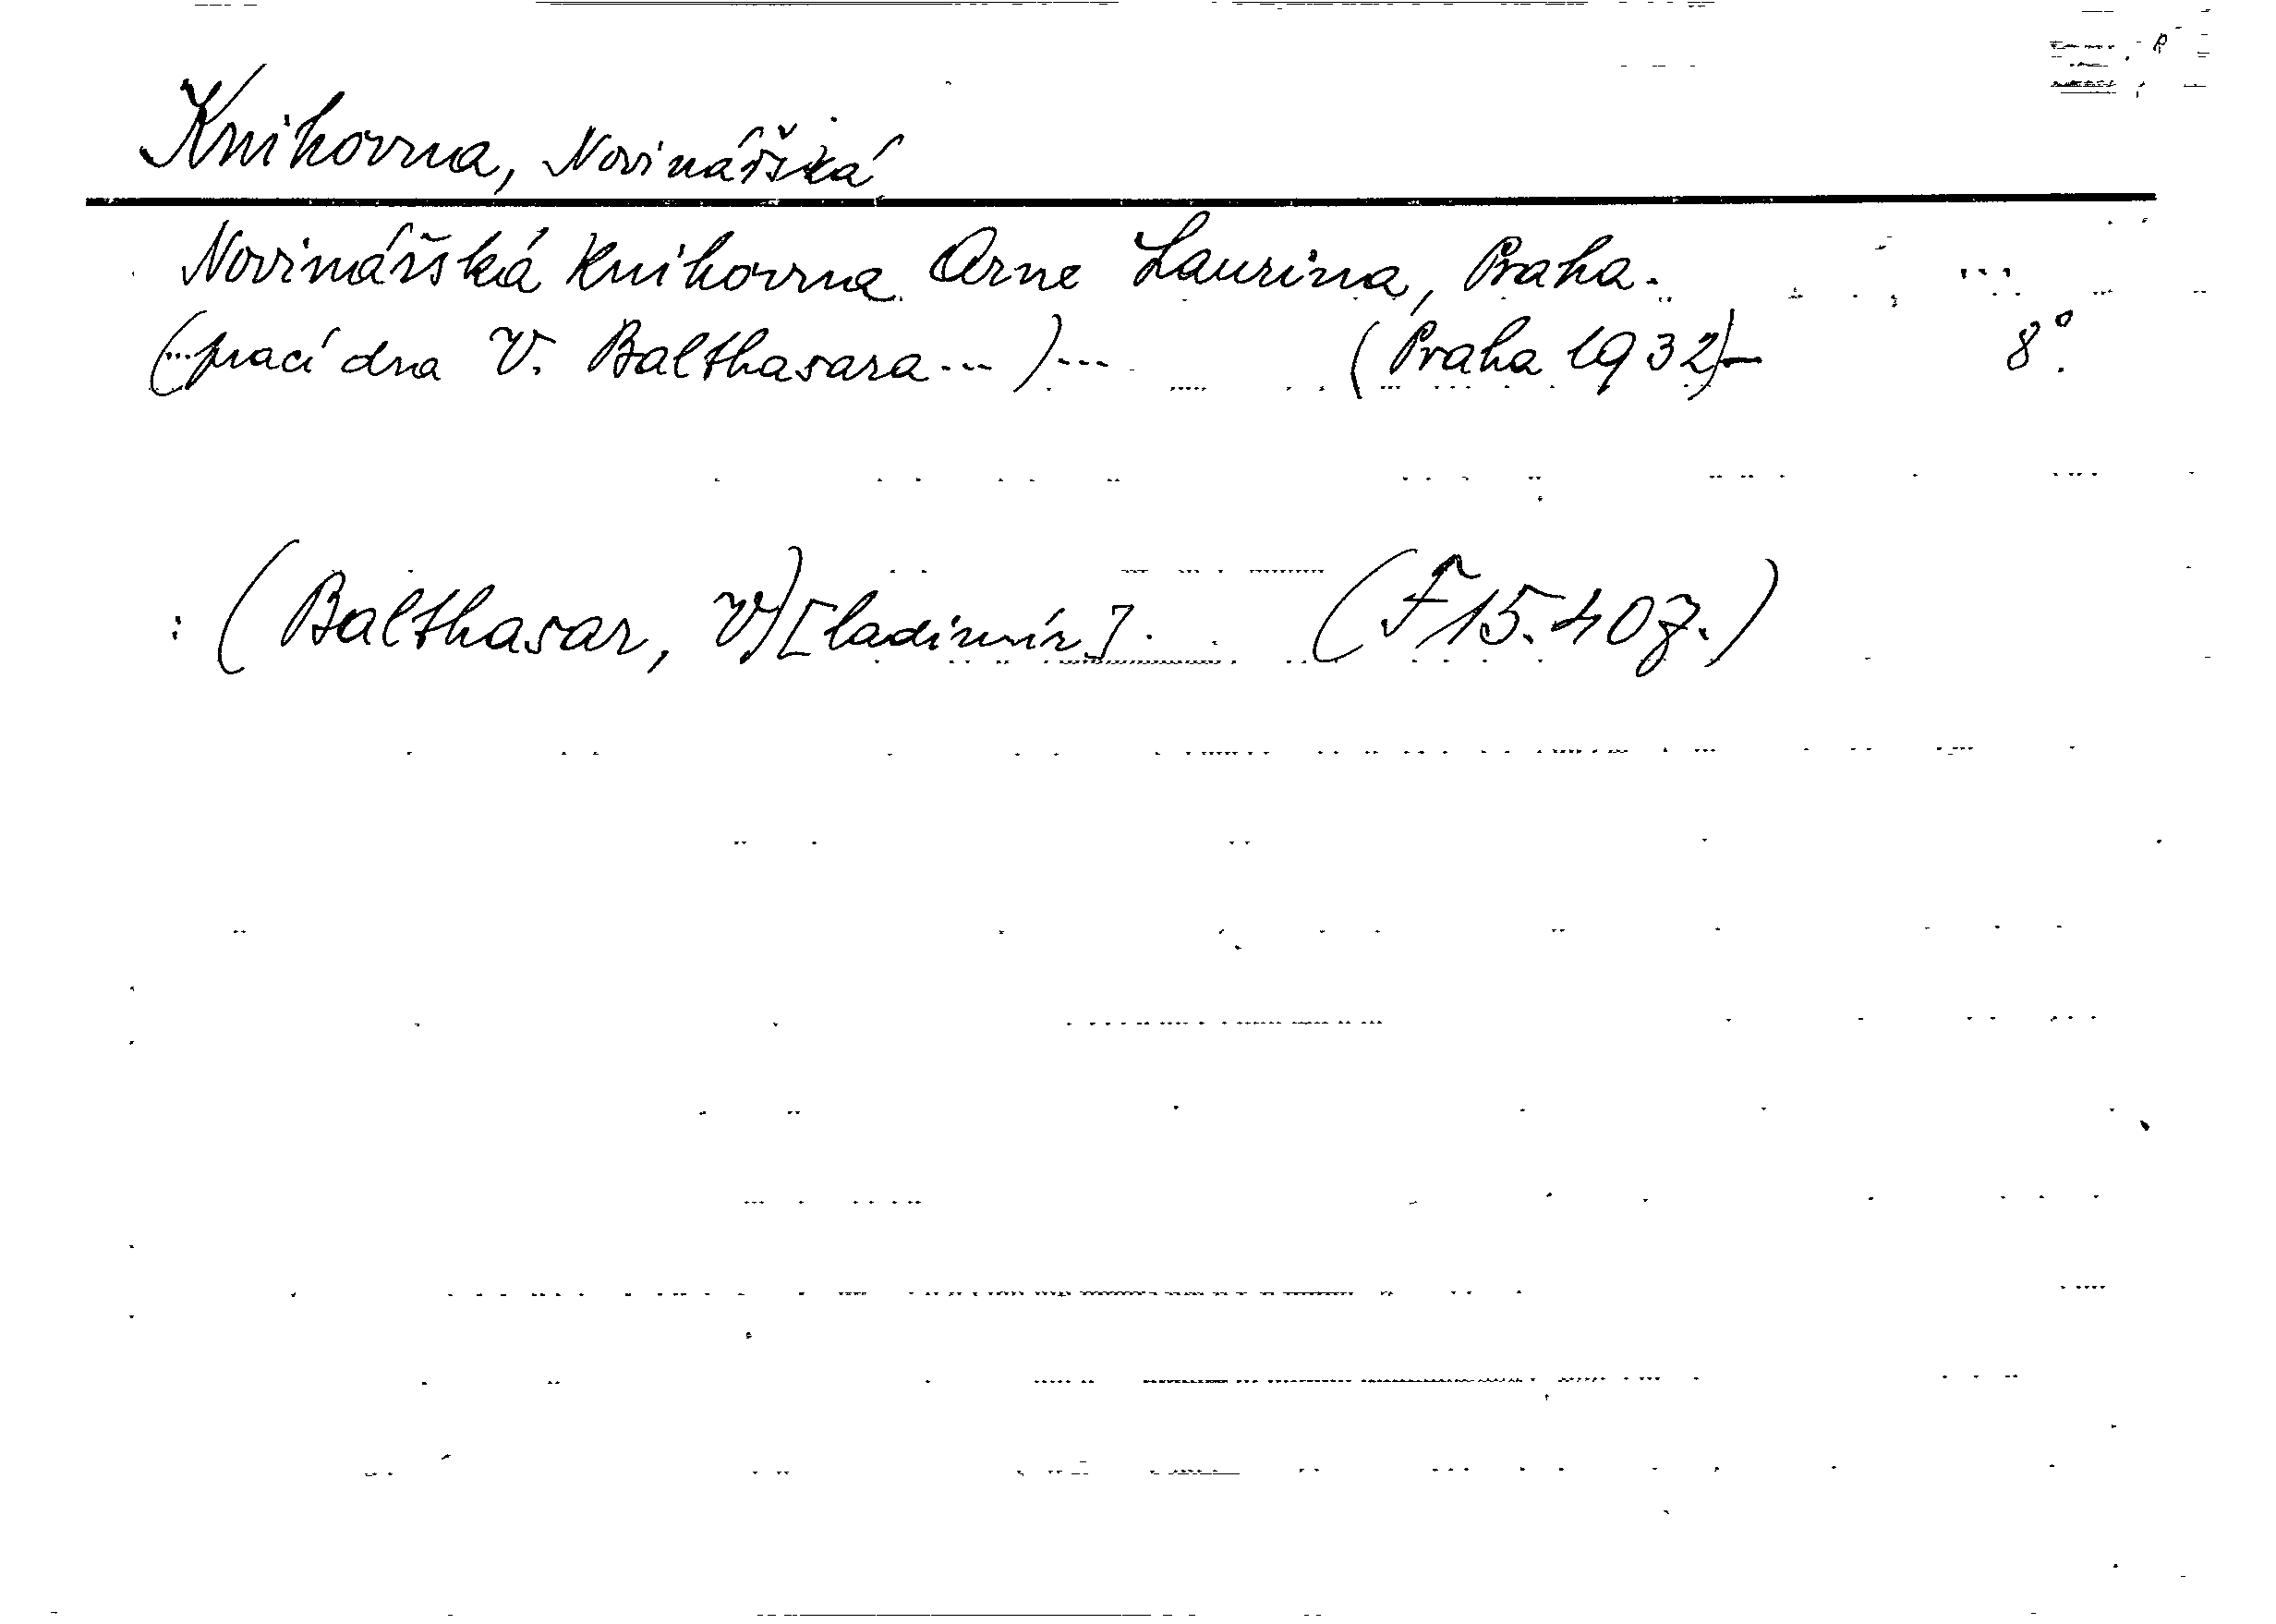 Knihovna, Novinářská
Novinářská knihovna Arne Laurina, Praha.
(...prací dra V. Balthasara...)... (Praha 1932)— 8°.
: (Balthasar, V)[ladimír]. (F 15.407.)